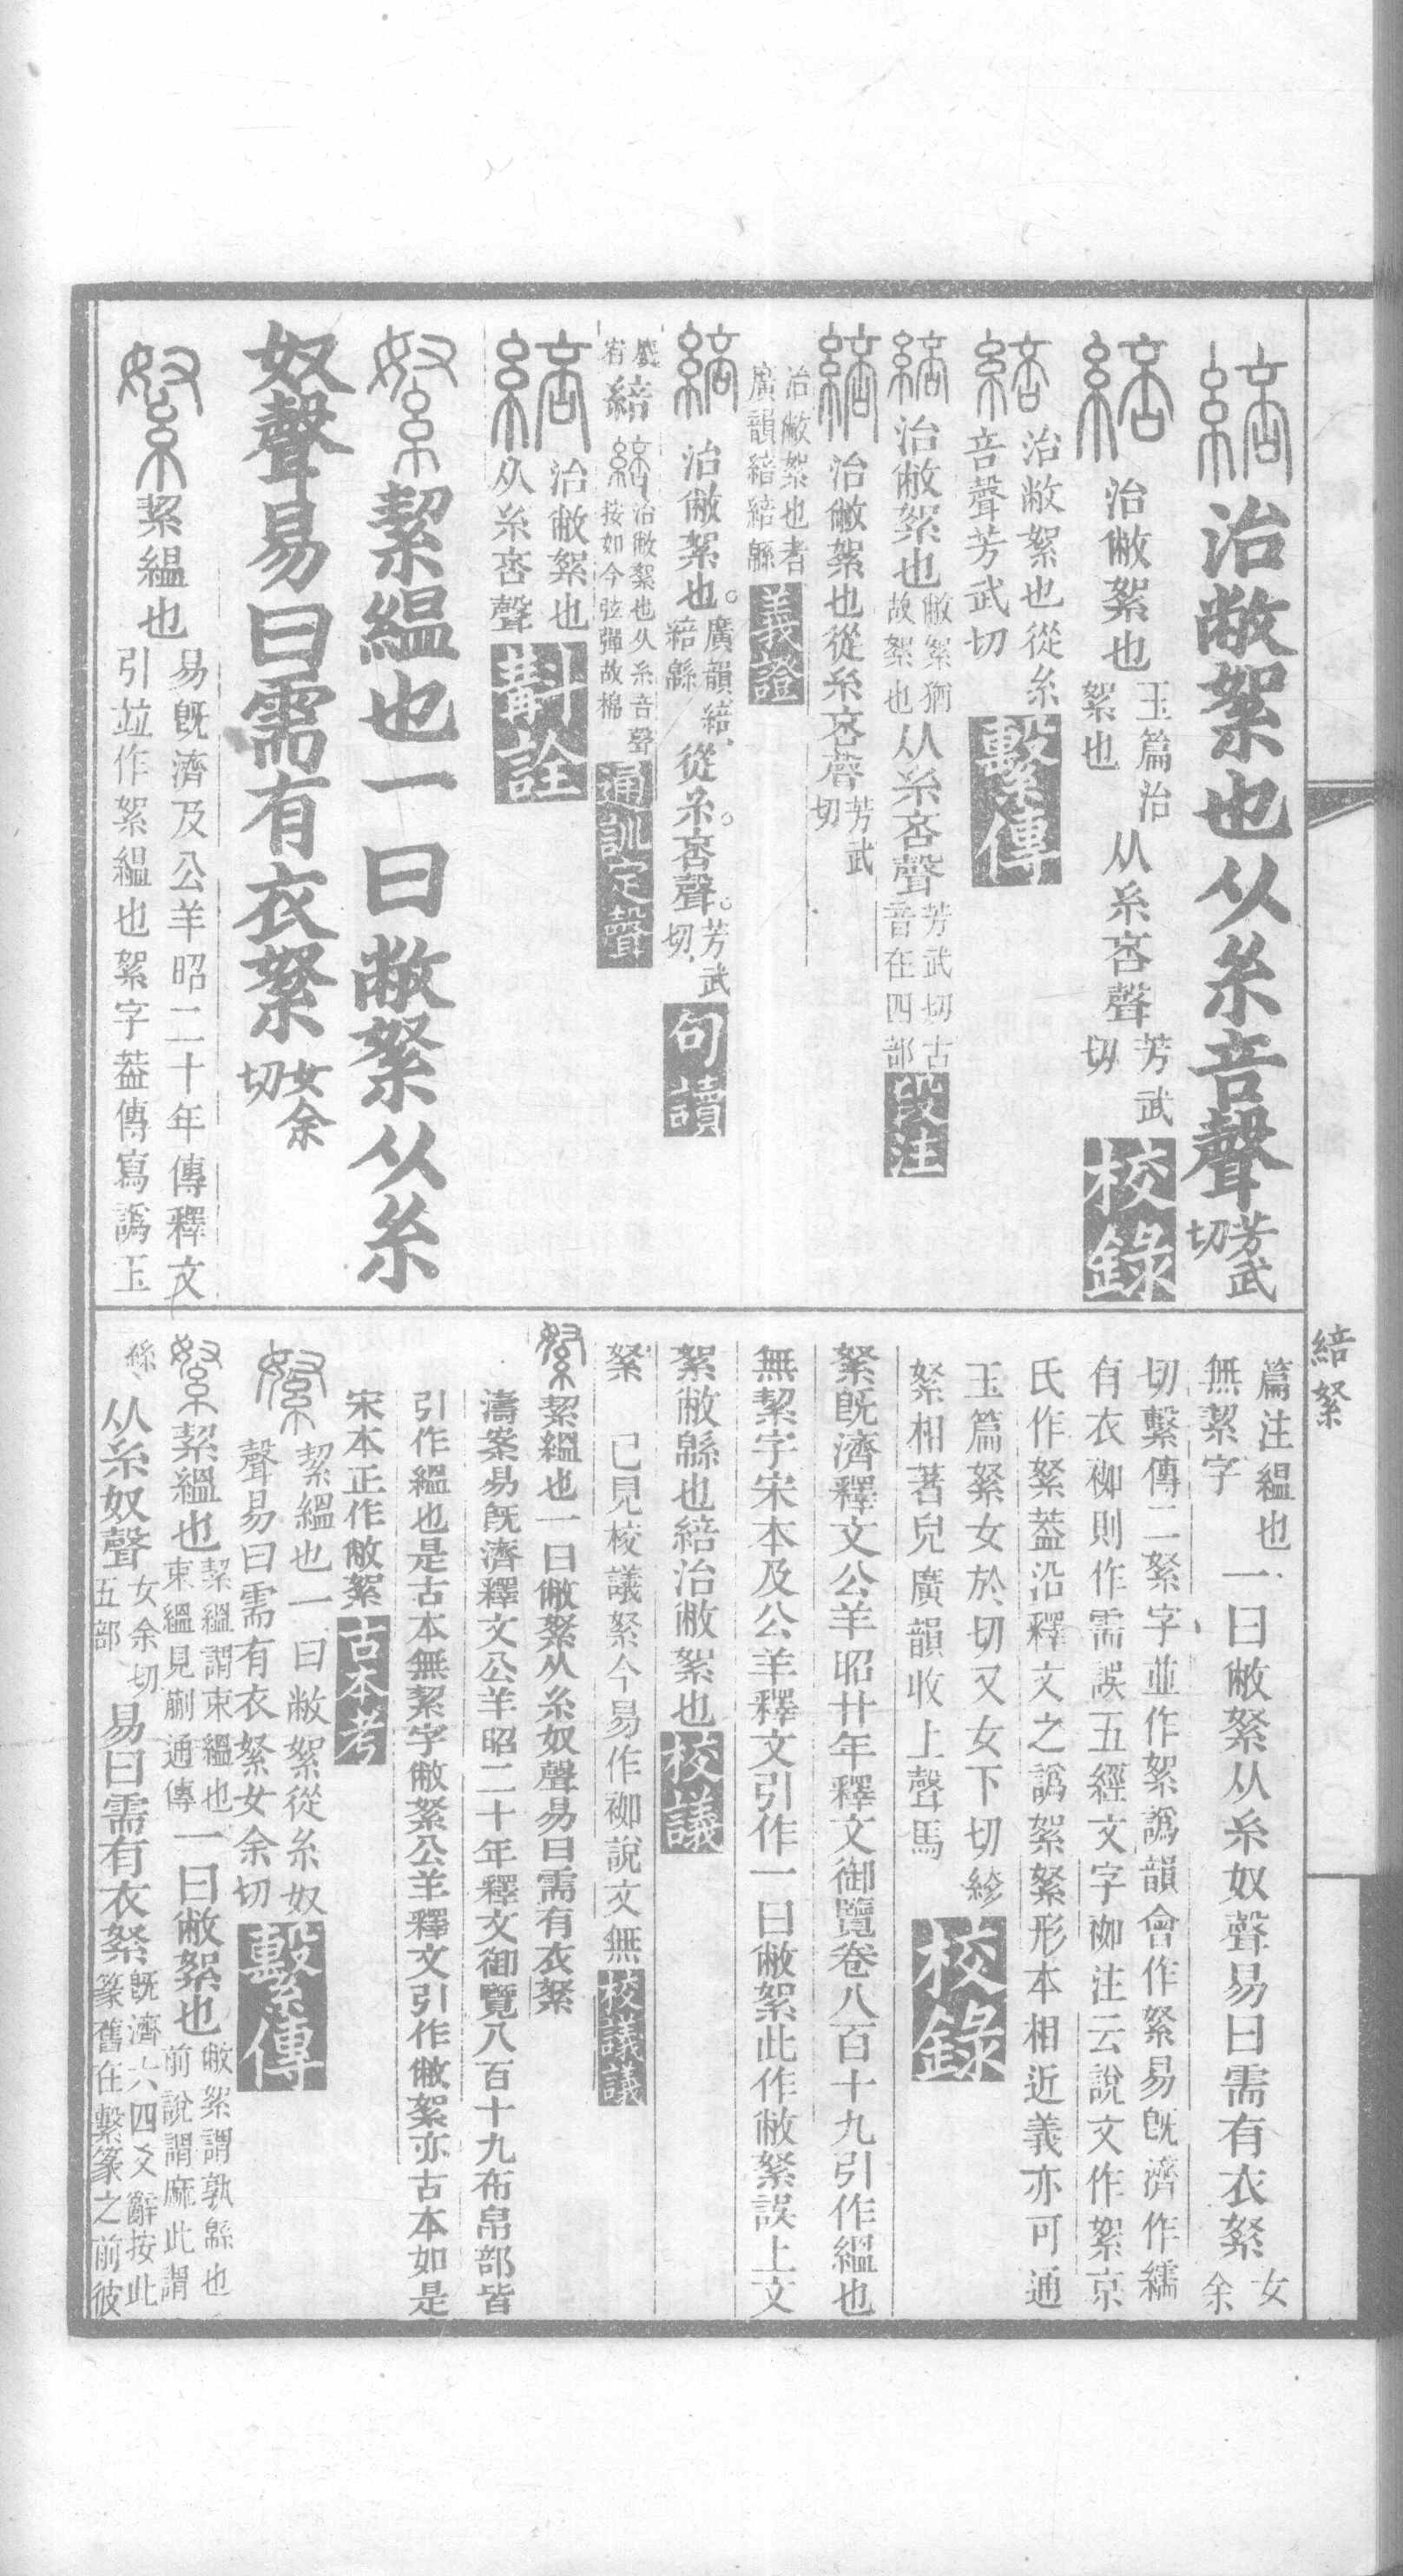 治敝絮也从糸咅聲芳武切
治敝絮也玉篇治絮也从糸咅聲芳武切校錄
治敝絮也從糸咅聲芳武切繫傳
治敝絮也敝絮猶故絮也从糸咅聲芳武切古音在四部段注
治敝絮也從糸咅聲芳武切
治敝絮也者廣韻綹綹緜義證
治敝絮也廣韻綹綹緜從糸咅聲芳武切句讀
綹治敝絮也从糸咅聲按如今弦彈故棉通訓定聲
治敝絮也从糸咅聲斠詮
絜縕也一曰敝絮从糸
奴聲易曰需有衣絮女余切
絜縕也易既濟及公羊昭二十年傳釋文引竝作絮縕也絮字葢傳寫譌玉
綹絮
篇注縕也無絜字一曰敝絮从糸奴聲易曰需有衣絮女余
切繫傳二絮字並作絮譌韻會作絮易既濟作繻
有衣袽則作需誤五經文字袽注云說文作絮京
氏作絮葢沿釋文之譌絮絮形本相近義亦可通
玉篇絮女於切又女下切紾
絮相著皃廣韻收上聲馬校錄
絮既濟釋文公羊昭廿年釋文御覽卷八百十九引作縕也
無絜字宋本及公羊釋文引作一曰敝絮此作敝絮誤上文
絮敝緜也綹治敝絮也校議
絮已見校議絮今易作袽說文無校議議
絜縕也一曰敝絮从糸奴聲易曰需有衣絮
濤案易既濟釋文公羊昭二十年釋文御覽八百十九布帛部皆
引作縕也是古本無絜字敝絮公羊釋文引作敝絮亦古本如是
宋本正作敝絮古本考
絜縕也一曰敝絮從糸奴
聲易曰需有衣絮女余切繫傳
絜縕也絜縕謂束縕也束縕見蒯通傳一曰敝絮也敝絮謂孰緜也前說謂麻此謂
絲从糸奴聲女余切五部易曰需有衣絮既濟六四爻辭按此篆舊在繫篆之前彼